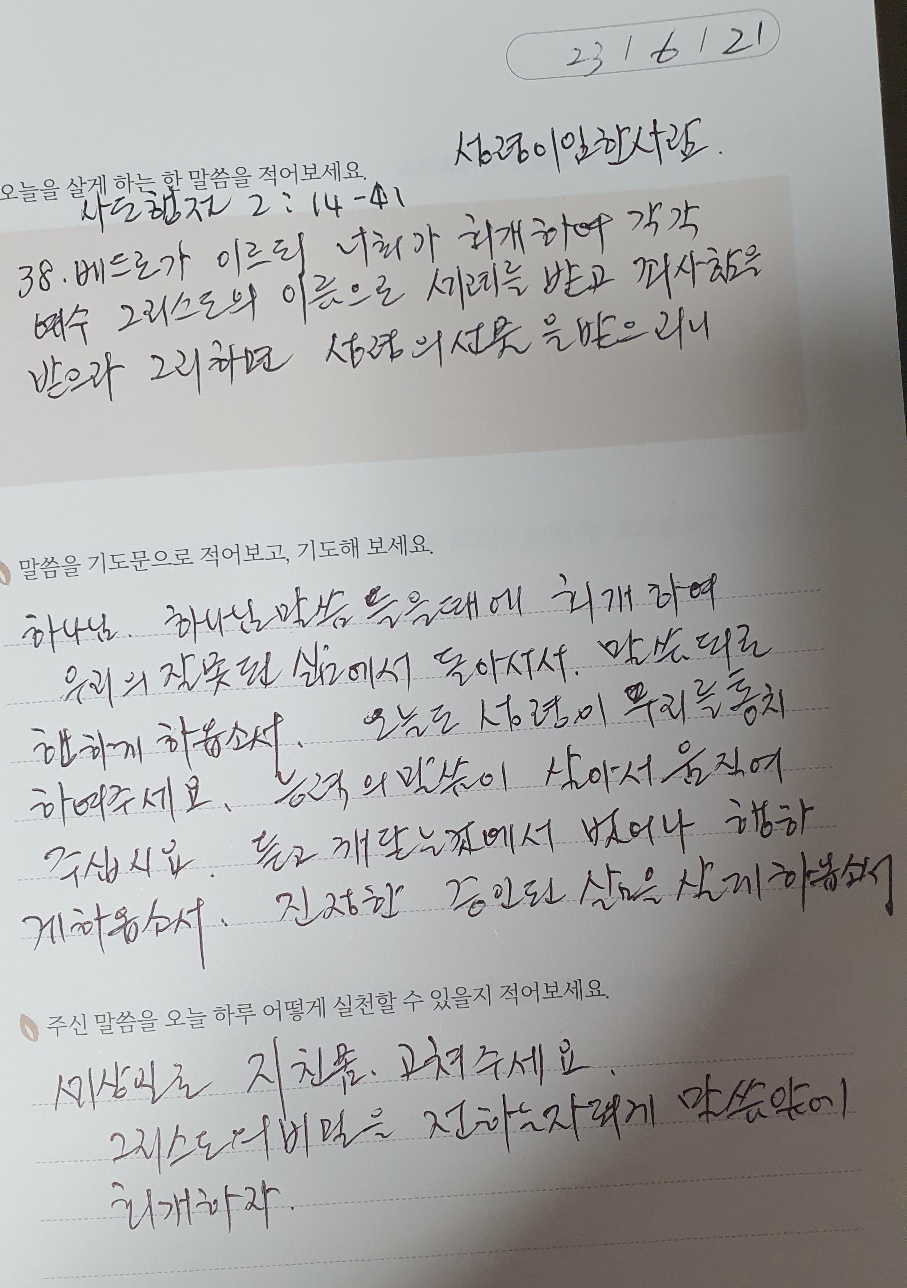 23 / 6 / 21
성령이임한사람.
오늘을 살게 하는 한 말씀을 적어보세요.
사도행전 2 : 14 - 41
38. 베드로가 이르되 너희가 회개하여 각각
예수 그리스도의 이름으로 세례를 받고 죄사함을
받으라 그리하면 성령의선물을받으리니
말씀을 기도문으로 적어보고, 기도해 보세요.
하나님. 하나님말씀 들을때에 회개하여
우리의 잘못된 삶에서 돌아서서. 말씀대로
행하게 하옵소서. 오늘도 성령이 우리를통치
하여주세요. 능력의말씀이 살아서 움직여
주십시요. 듣고 깨닫는것에서 벗어나 행하
게하옵소서. 진정한 증인된 삶을살게하옵소서
주신 말씀을 오늘 하루 어떻게 실천할 수 있을지 적어보세요.
세상일로 지친몸. 고쳐주세요.
그리스도의비밀을 전하는자되게 말씀앞에
회개하자.